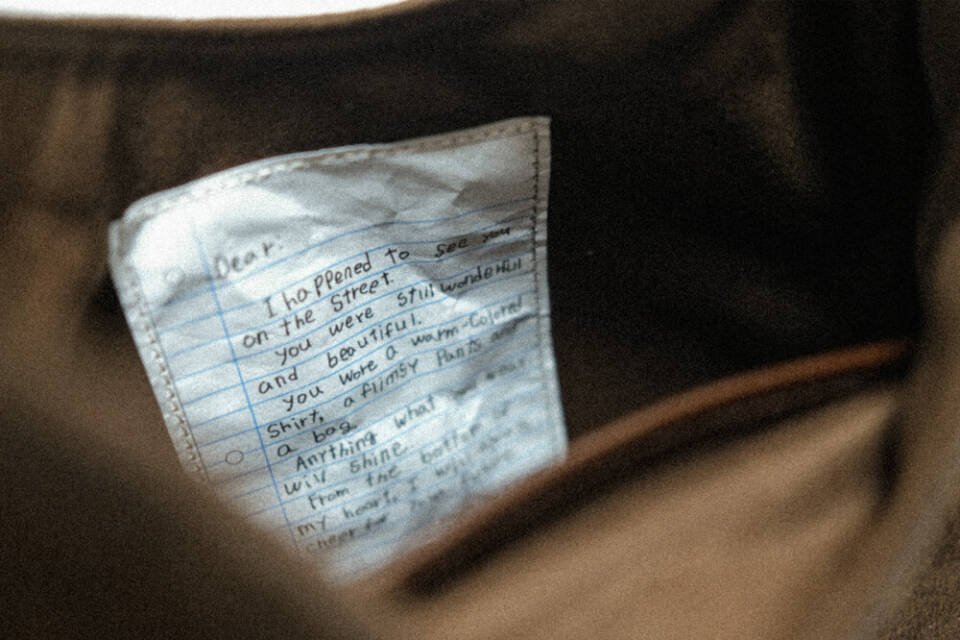 Dear.
I happened to see you
on the Street.
you were still wonderful
and beautiful.
you wore a warm-Colored
Shirt, a flimsy Pants and
a bag.
Anything what wear
will shine.
from the bottom
my heart, I will
cheer for